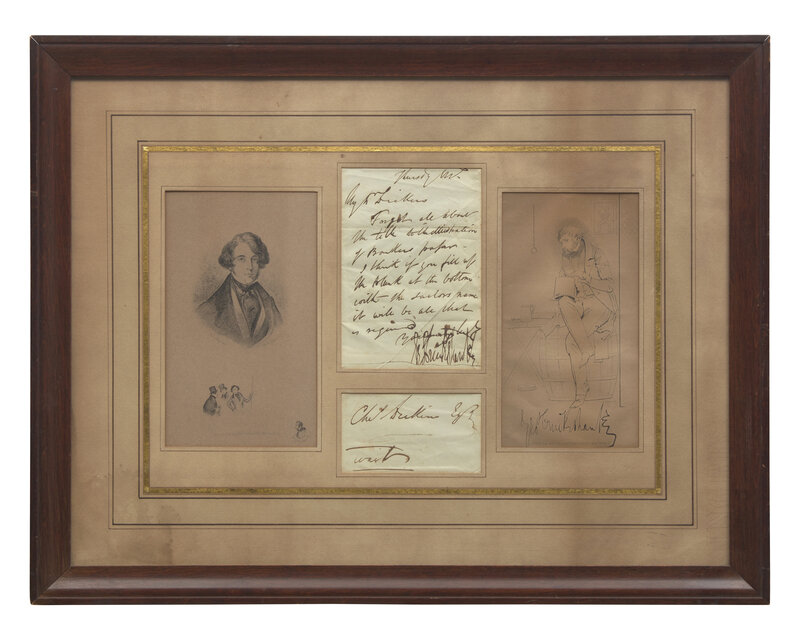 Thursday Mg.
My Dr Dickens
Forget all about
the title to the illustration
of Boackers paper —
I think if you fill up
the blank at the bottom
with the sailors name
it will be all that
is required
Yrs
Geo Cruikshank
Chas Dickens Esqr
Geo Cruikshank